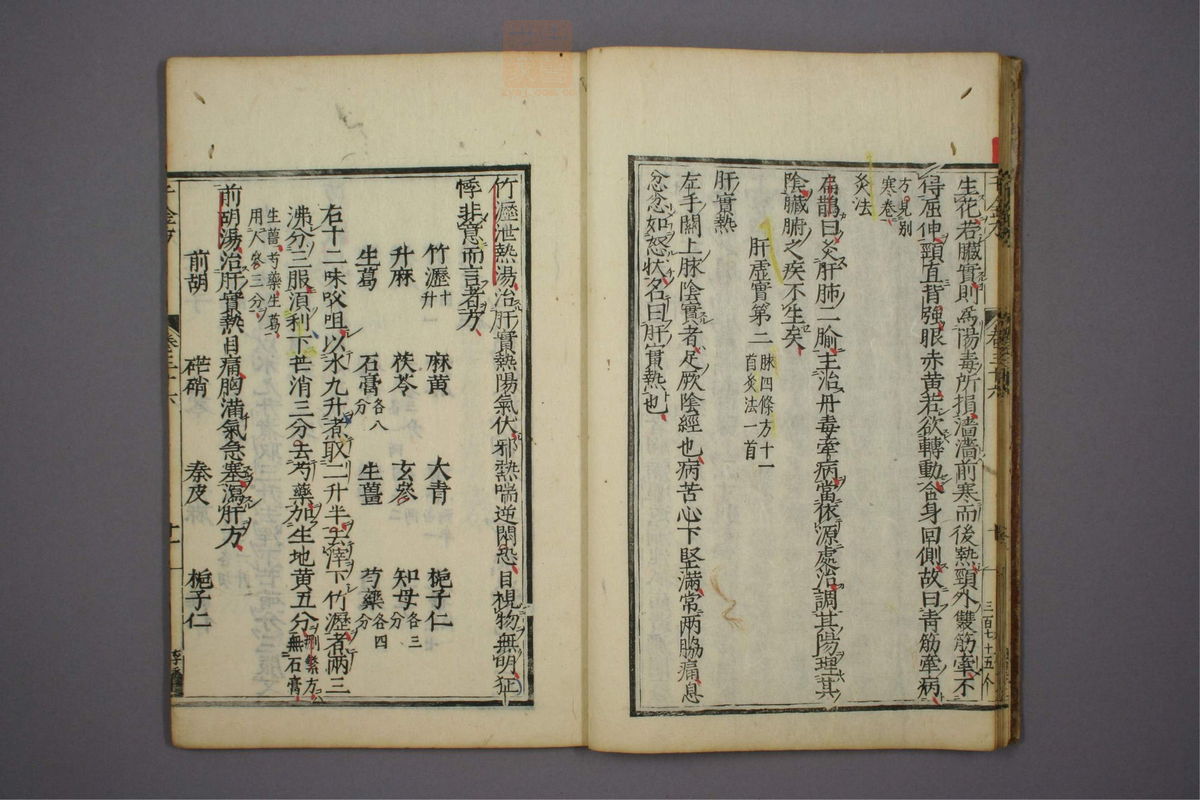 生花若臟實則爲陽毒所損濇濇前寒而後熱頸外雙筋牽不
得屈伸頸直背強眼赤黄若欲轉動合身回側故曰青筋牽病
方見別
寒卷
灸法
扁鵲曰灸肝肺二腧主治丹毒牽病當依源處治調其陽理其
陰臟腑之疾不生矣
肝虛實第二 脉四條方十一
首灸法一首
肝實熱
左手關上脉陰實者足厥陰經也病苦心下堅滿常兩脇痛息
忿忿如怒狀名曰肝實熱也
竹瀝泄熱湯治肝實熱陽氣伏邪熱喘逆悶恐目視物無明狂
悸非意而言者方
竹瀝一升 麻黄 大青 梔子仁
升麻 茯苓 玄參 知母各三分
生葛 石膏各八分 生薑 芍藥各四分
右十二味㕮咀以水九升煮取二升半去滓下竹瀝煮兩三
沸分三服須利下芒消三分去芍藥加生地黄五分刪繁方
無石膏
生薑芍藥生葛
用人參三分
前胡湯治肝實熱目痛胸滿氣急塞瀉肝方
前胡 芒硝 秦皮 梔子仁
卷三十六
三百七十五个